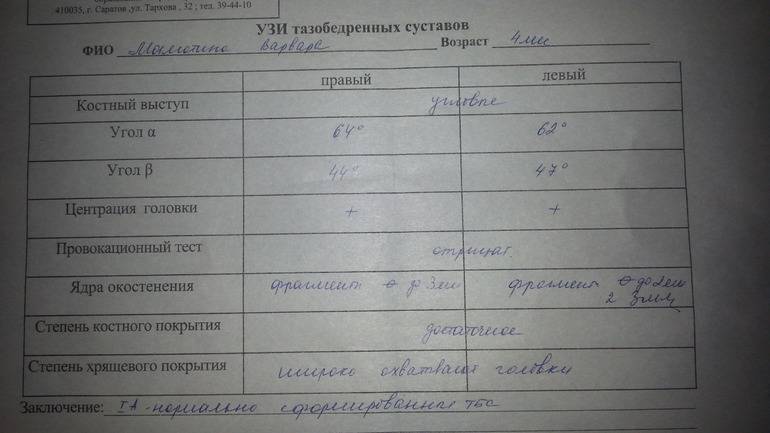 410035, г. Саратов ,ул. Тархова , 32 ; тел. 39-44-10
УЗИ тазобедренных суставов
ФИО Варвара Возраст 4 мес
правый левый
Костный выступ угловые
Угол α 64° 62°
Угол β 44° 47°
Центрация головки + +
Провокационный тест отрицат.
Ядра окостенения фрагмент до 3мм фрагмент до 2мм
2 3мм
Степень костного покрытия достаточное
Степень хрящевого покрытия широко охватывает головки
Заключение: IА - нормально сформированные тбс